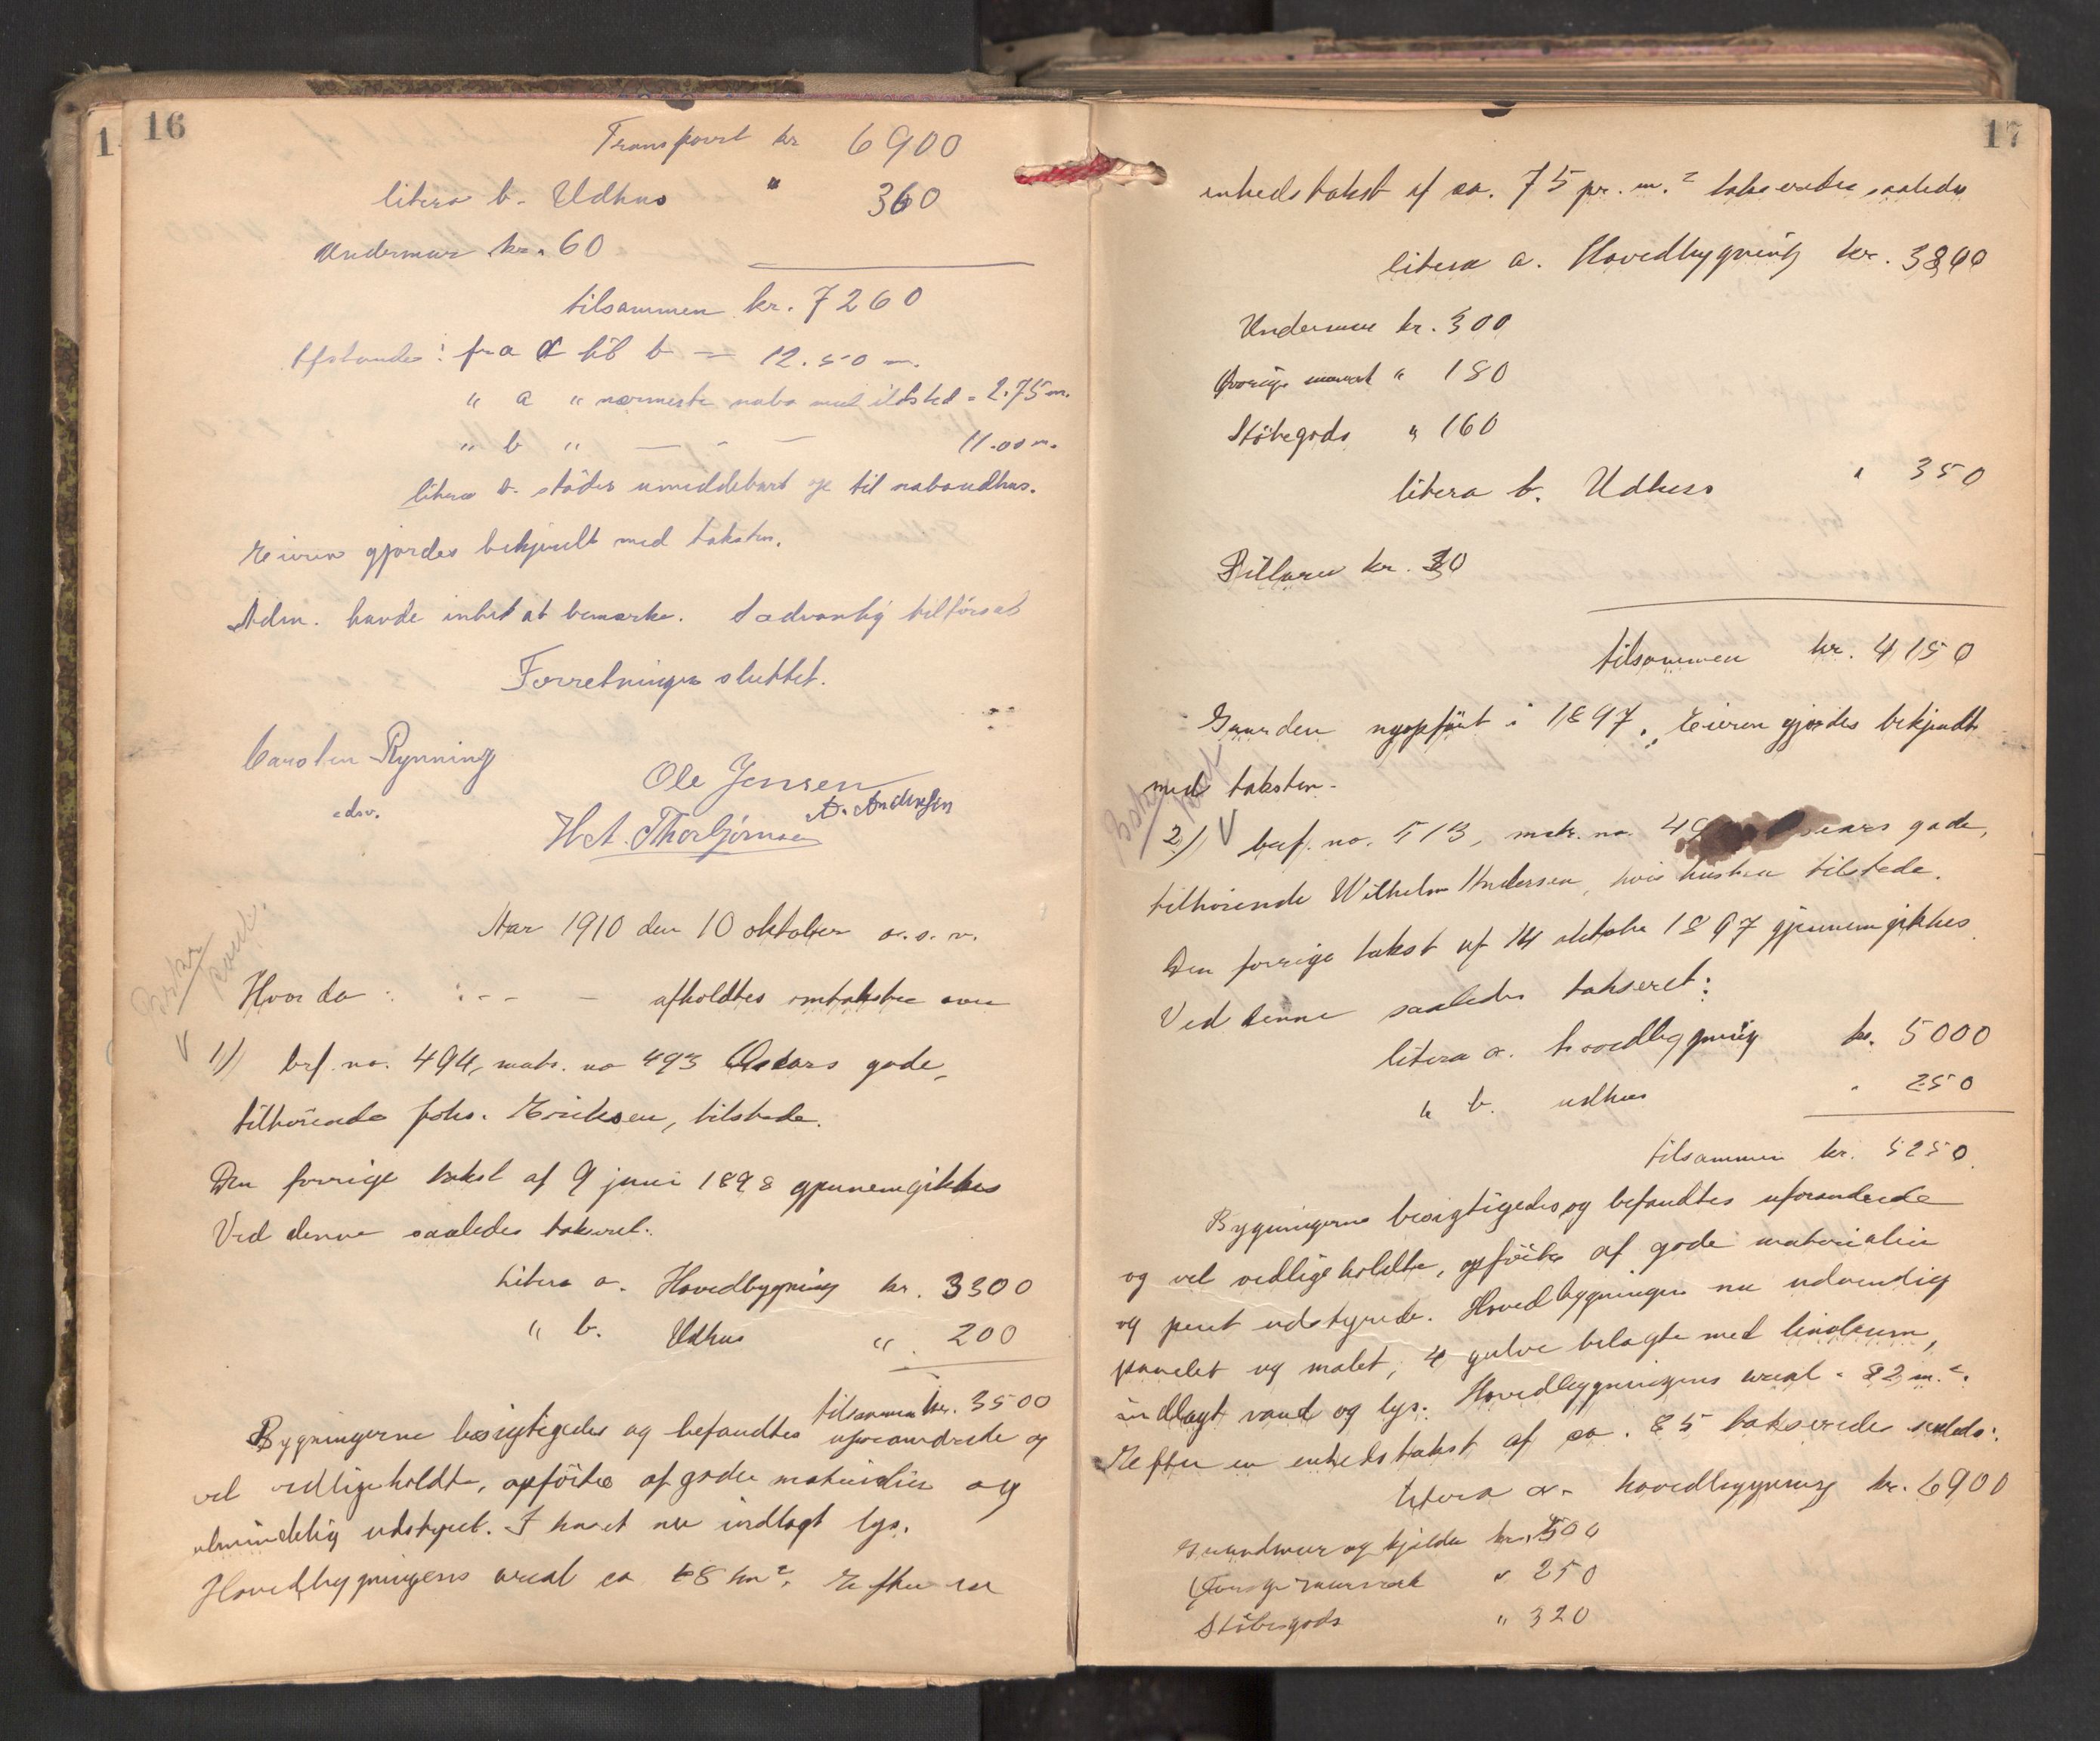 16
Transport kr 6900
litera b. Udhus " 360
Undermur kr. 60
tilsammen kr. 7260
Afstande: fra a til b = 12.50 m.
" a " nærmeste nabo med ildsted = 2.75 m.
" b " — - — 11.00 m.
litera b. støder umiddelbart op til naboudhus.
Eieren gjordes bekjendt med taksten.
Adm. havde intet at bemærke. Sædvanlig tilførsel
Forretningen sluttet.
Carsten Rynning
adv.
Ole Jensen
A. Andersen
H. A. Thorbjørnsen
Aar 1910 den 10 oktober o. s. v.
Hvor da : : - - - afholdtes omtakster over
1) brf. no. 494, matr. no 493 Oscars gade,
tilhörende Johs. Eriksen, tilstede.
Den forrige takst af 9 juni 1898 gjennemgikkes
Ved denne saaledes takseret:
Litera a. Hovedbygning kr. 3300
" b. Udhus " 200
tilsammen kr. 3500
Bygningerne besigtigedes og befandtes uforandrede og
vel vedligeholdte, opförte af gode materialier og
almindelig udstyret. I huset nu indlagt lys.
Hovedbygningens areal ca 48 m². Efter en
17
enhedstakst af ca. 75 pr. m.² takseredes saaledes
litera a. Hovedbygning kr. 3800
Undermur kr. 300
Øvrige murverk " 180
Stöbegods " 160
litera b. Udhus " 350
Pillarer kr. 30
tilsammen kr. 4150
Gaarden nyopført i 1897. Eieren gjordes bekjendt
med taksten.
2) brf. no. 513, matr. no. gade,
tilhörende Wilhelm Andersen, hvis hustru tilstede.
Den forrige takst af 14 oktober 1897 gjennemgikkes
Ved denne saaledes takseret:
litera a. hovedbygning kr. 5000
" b. udhus " 250
tilsammen kr. 5250.
Bygningerne besigtigedes og befandtes uforandrede
og vel vedligeholdte, opförte af gode materialier
og pent udstyrede. Hovedbygningen nu udvendig
panelet og malet, 4 gulve belagte med linoleum,
indlagt vand og lys. Hovedbygningens areal = 82 m.².
Efter en enhedstakst af ca. 85 takseredes saaleds:
litera a. hovedbygning kr. 6900
Grundmur og kjelder kr. 500
Øvrige murverk " 250
Stöbegods " 320